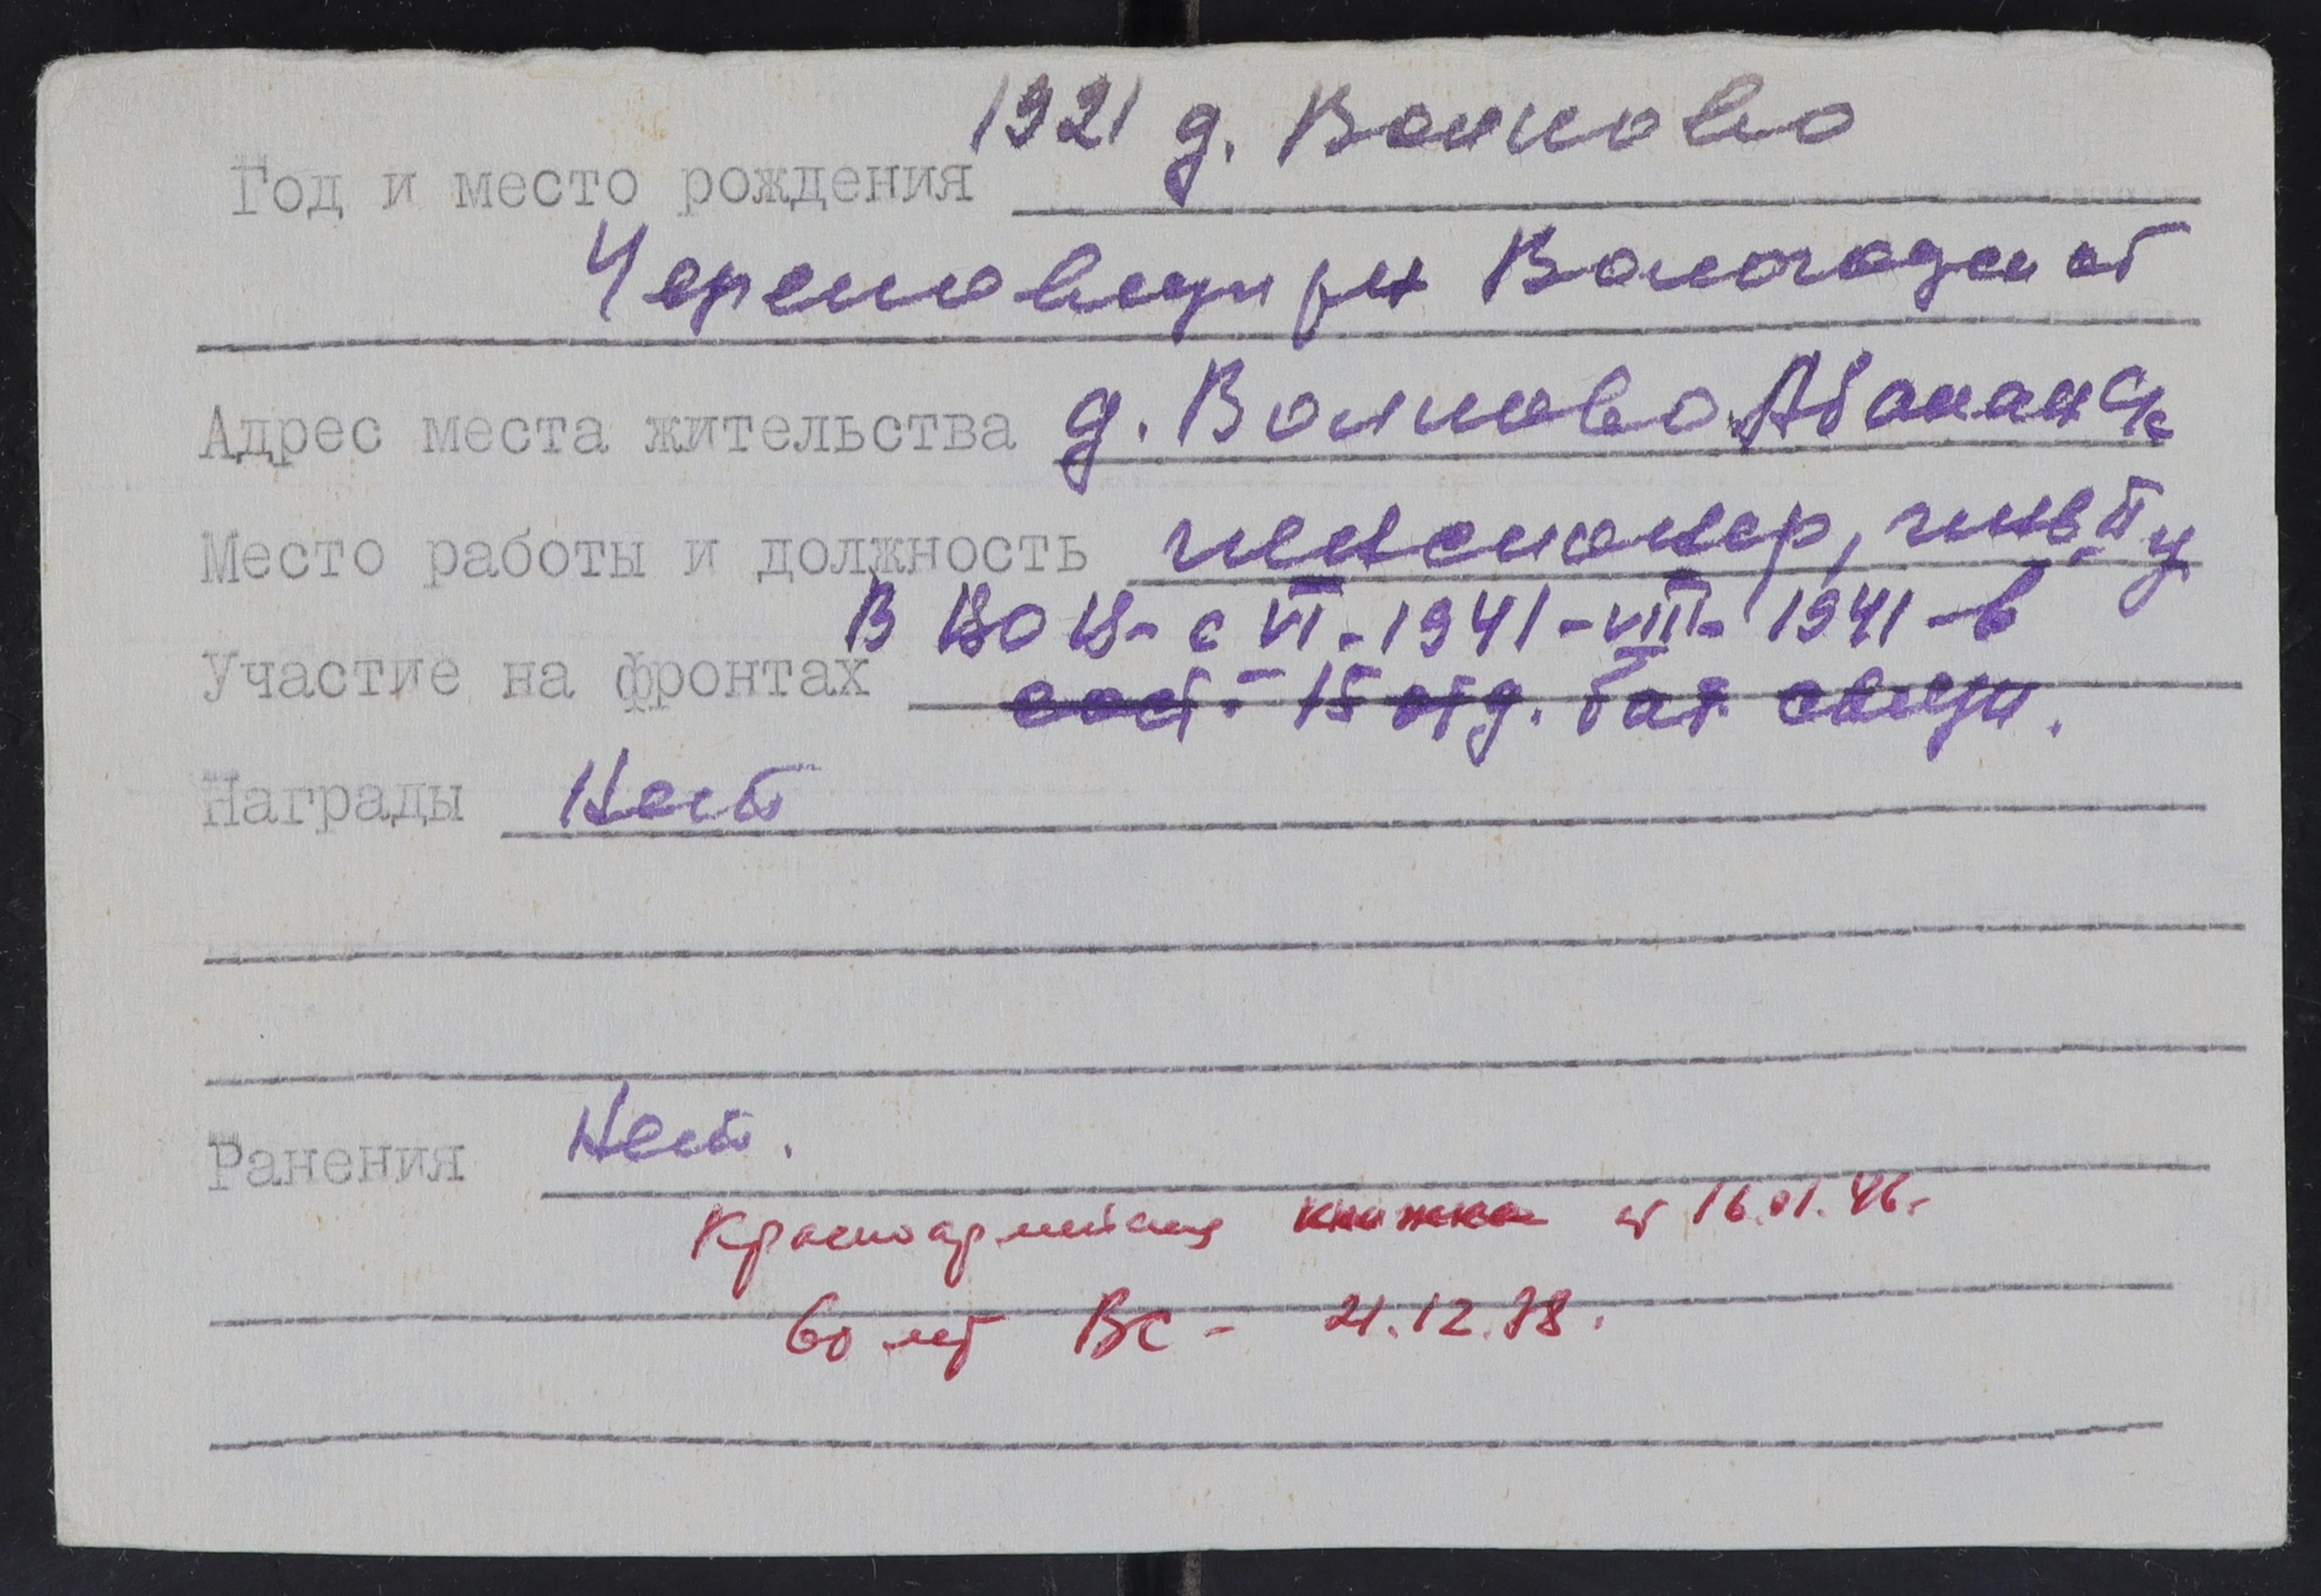 1921 д. Волково
Год и место рождения
Череповецк р-н Вологодск обл
Адрес места жительства д. Волково Абаканск
Место работы и должность пенсионер, инв. II
В ВОВ - с VI - 1941 - VIII - 1941 - в
Участие на фронтах сост. - 15 отд. бат. связи.
Награды Нет
Ранения Нет.
Красноармейская книжка от 16.01.46.
60 лет ВС - 21.12.78.